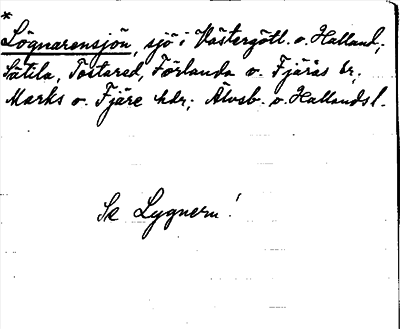 *
Lögnarensjön, sjö i Västergötl. o. Halland;
Sätila, Tostared, Förlanda o. Fjärås sr,
Marks o. Fjäre hdr; Älvsb. o. Hallands l.
Se Lygnern!